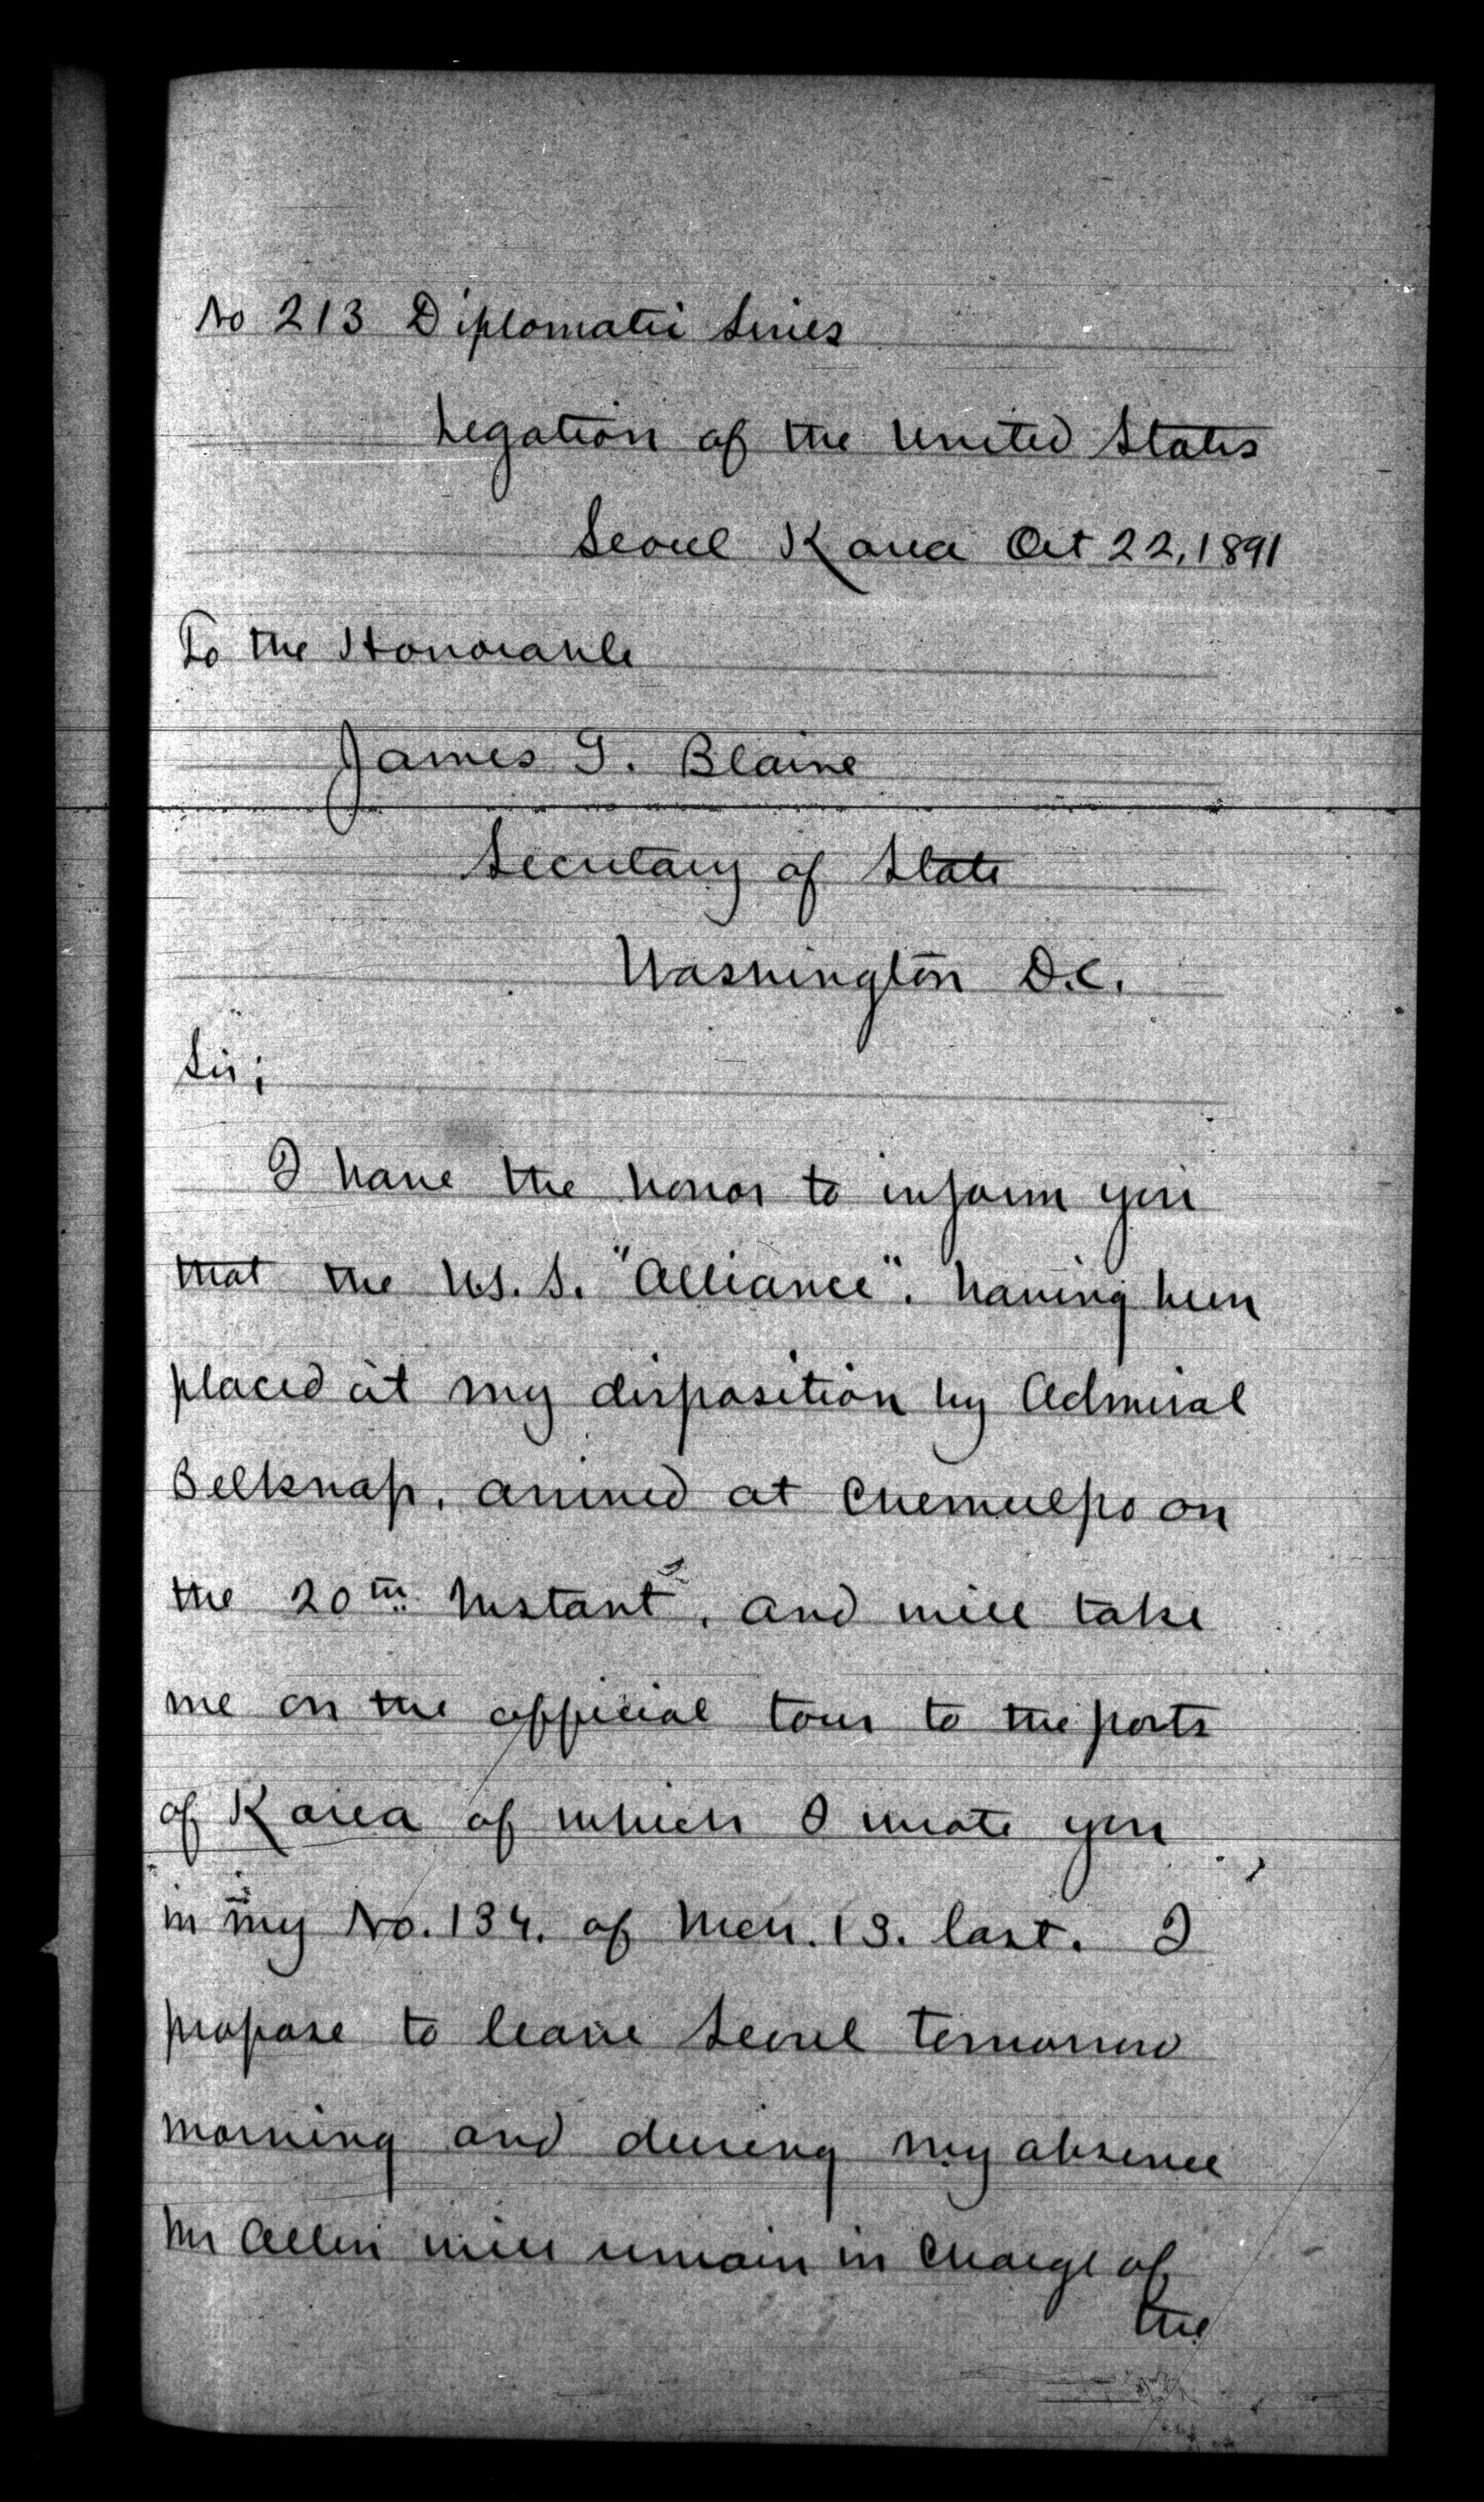 No 213 Diplomatic Series
Legation of the United States
Seoul Korea Oct 22, 1891
To the Honorable
James G. Blaine
Secretary of State
Washington D.C.
Sir;
I have the honor to inform you
that the U.S. S. "Alliance". having been
placed at my disposition by Admiral
Belknap, arrived at Chemulpo on
the 20th Instant, and will take
me on the official tour to the ports
of Korea of which I wrote you
in my No. 134. of Mch. 13. last. I
propose to leave Seoul tomorrow
morning and during my absence
Mr Allen will remain in charge of
the